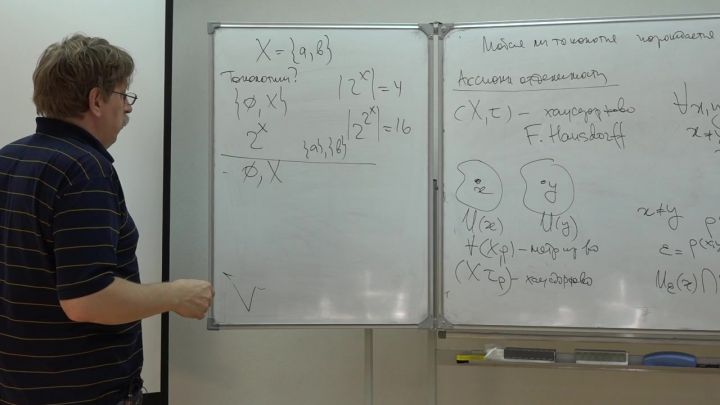 X = {a, b}
Топологии?
{∅, X}
|2^X| = 4
2^X
|2^{2^X}| = 16
{a}, {b}
- ∅, X
V
топология порождается
Аксиомы отделимости
(X, τ) – хаусдорфово
F. Hausdorff
∀x, y
x≠y
·x
·y
U(x) U(y)
x≠y
∀(X, ρ) –
ρ
ε = ρ(x,y
(X, τ_ρ) – хаусдорфово
U_ε(x) ∩